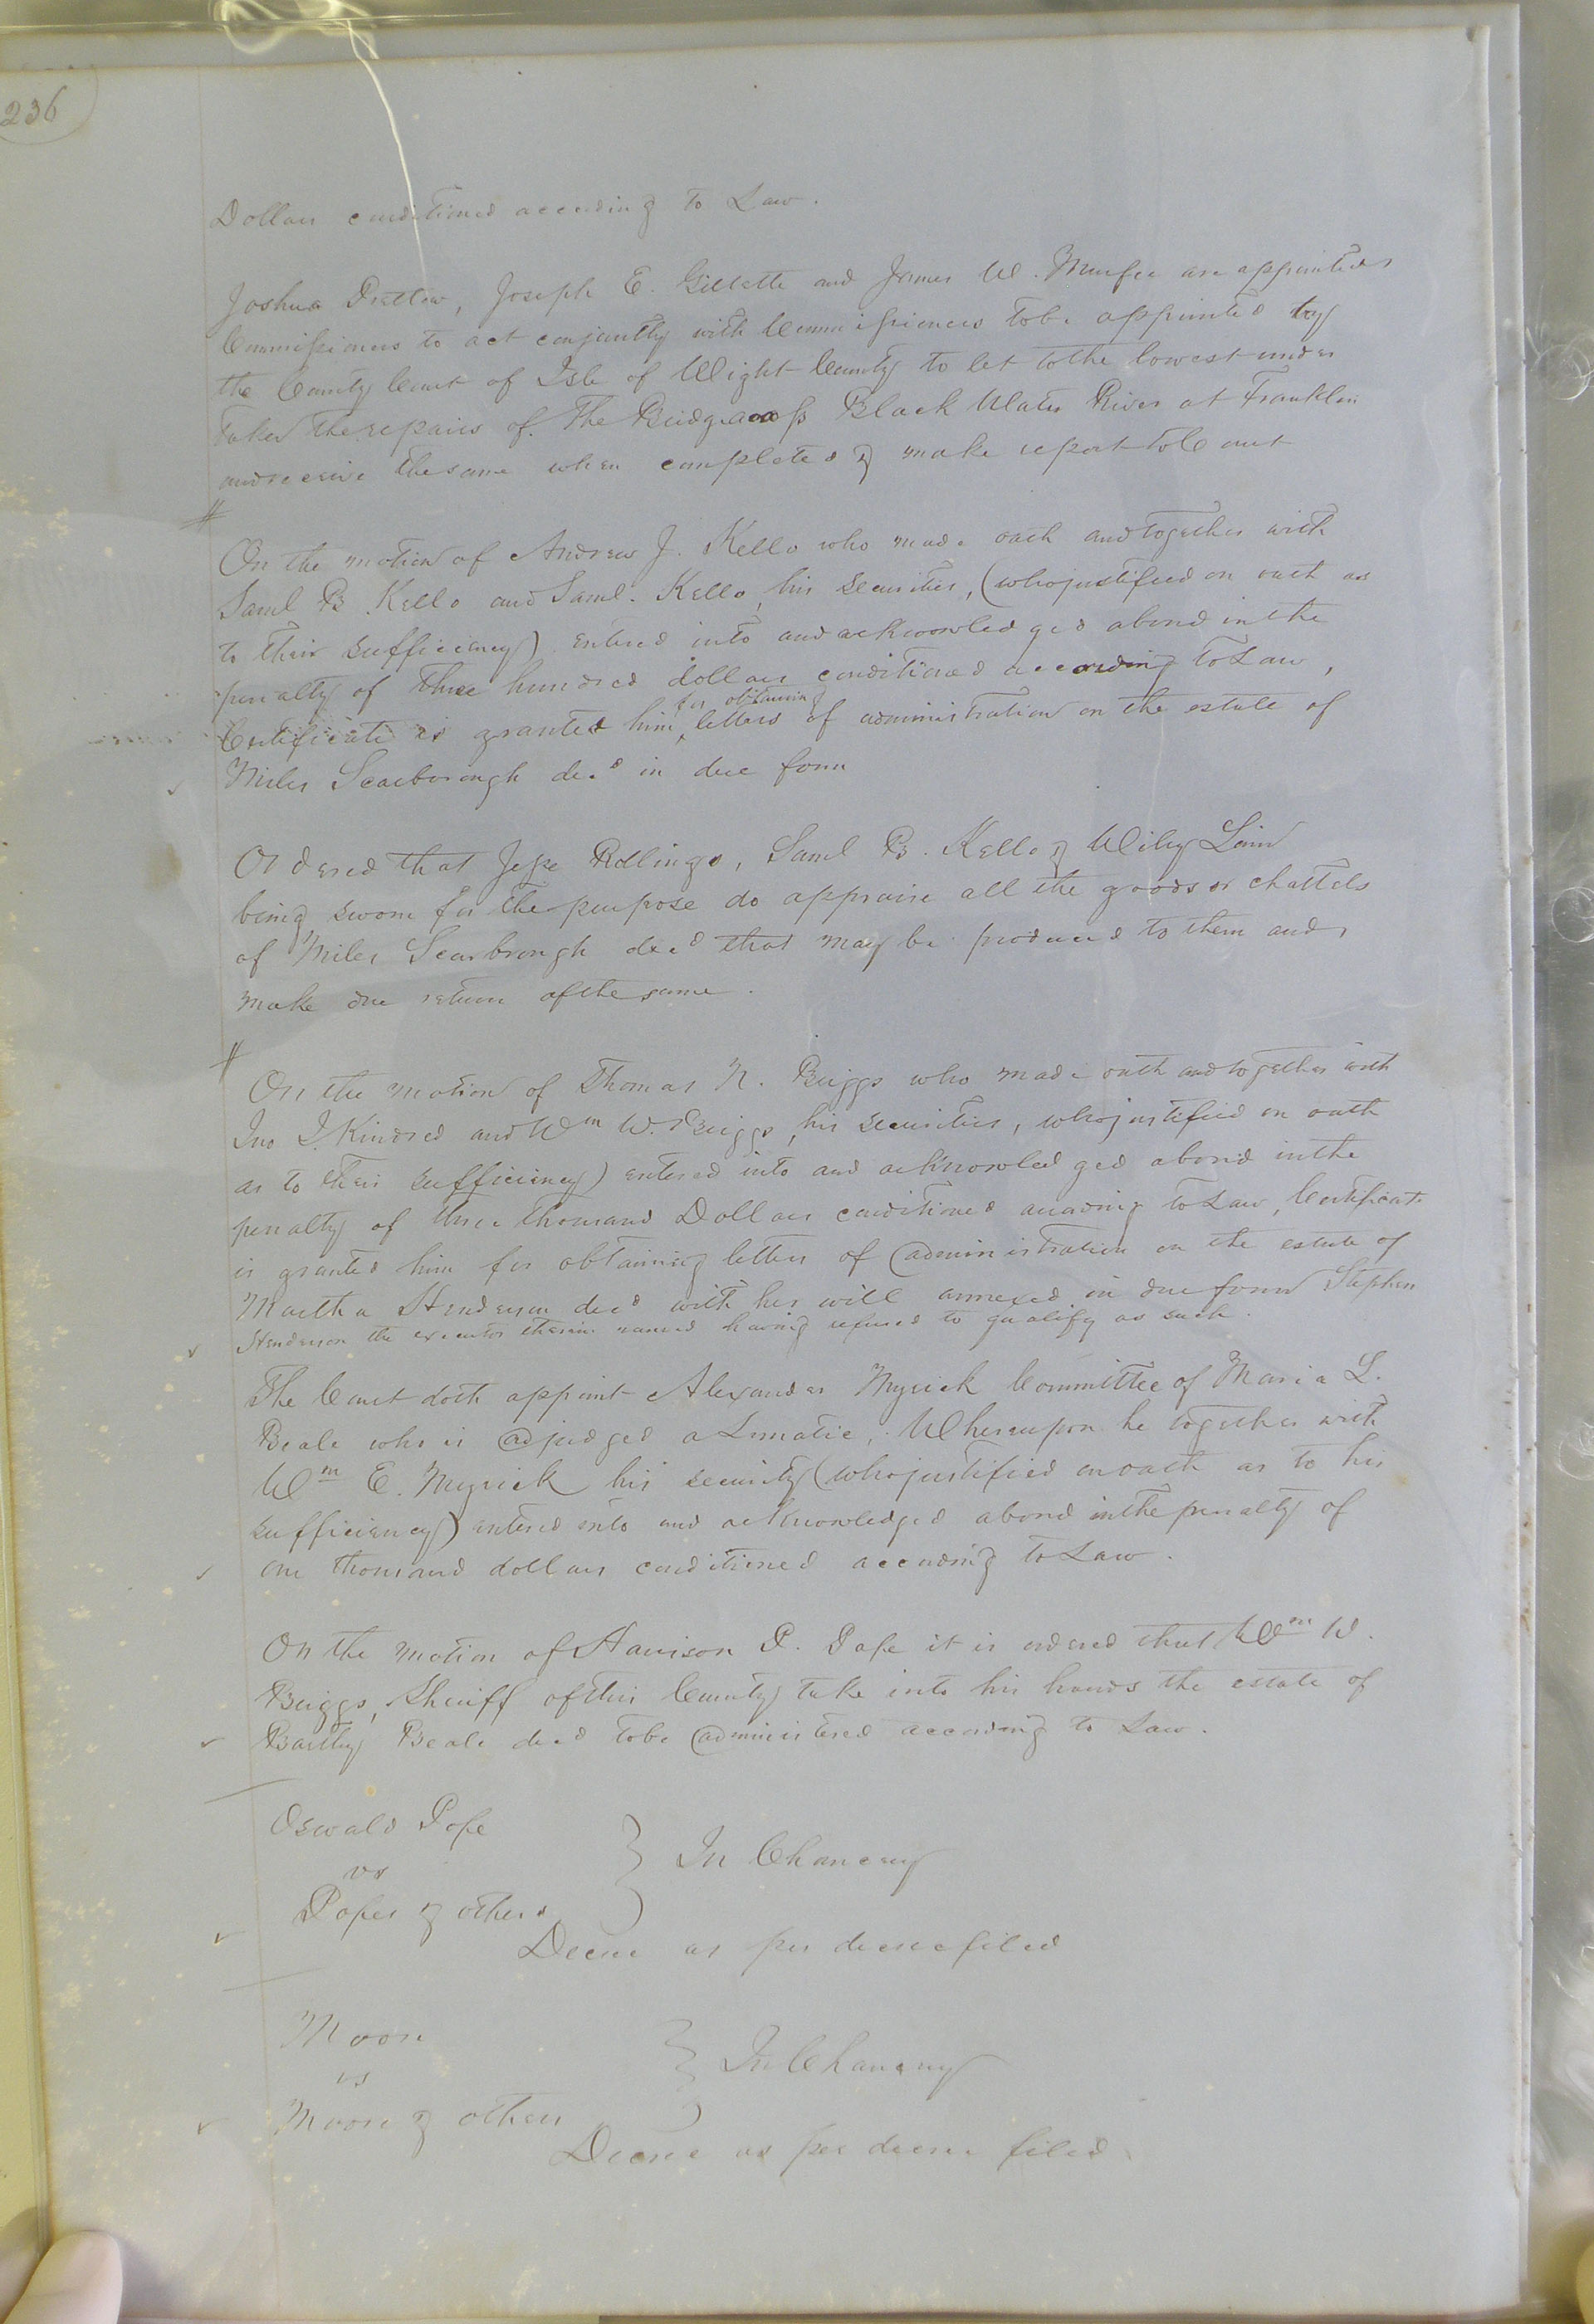 236
Dollars conditioned according to Law.
Joshua Pretlow, Joseph E. Gillette and James W. Murfee are appointed
Commissioners to act conjointly with Commissioners to be appointed by
the County Court of Isle of Wight County to let to the lowest under
taker the repairs of the Bridge across Black Water River at Franklin
and receive the same when completed & make report to Court
On the motion of Andrew J. Kello who made oath and together with
Saml B. Kello and Saml. Kello, his securities, (who justified on oath as
to their sufficiency) entered into and acknowledged a bond in the
penalty of three hundred dollars conditioned according to Law,
for obtaining
Certificate is granted him letters of administration on the estate of
Miles Scarborough decd in due form
Ordered that Jesse Rollings, Saml B. Kello & Wiley Lain
being sworn for the purpose do appraise all the goods or chattels
of Miles Scarbrough decd that may be produced to them and
make due return of the same.
On the motion of Thomas N. Briggs who made oath and together with
Jno J. Kindred and Wm W. Briggs, his securities, who justified on oath
as to their sufficiency) entered into and acknowledged a bond in the
penalty of three thousand Dollars conditioned according to Law, Certificate
is granted him for obtaining letters of administration on the estate of
Martha Henderson decd with her will annexed in due form Stephen
Henderson the executor therein named having refused to qualify as such.
The Court doth appoint Alexander Myrick Committee of Maria L.
Beale who is adjudged a Lunatic, Whereupon he together with
Wm E. Myrick his security (who justified on oath as to his
sufficiency) entered into and acknowledged a bond in the penalty of
one thousand dollars conditioned according to Law.
On the motion of Harrison P. Pope it is ordered that Wm W.
Briggs, Sheriff of this County take into his hands the estate of
Barthy Beale decd to be administered according to Law.
Oswald Pope
vs } In Chancery
Popes & others
Decree as per decree filed
Moore
vs } In Chancery
Moore & others
Decree as per decree filed.